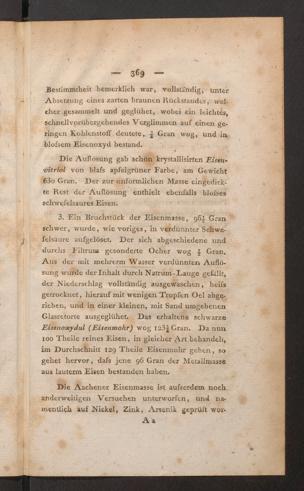 — 369 —
Bestimmtheit bemerklich war, vollständig, unter
Absetzung eines zarten braunen Rückstandes, wel-
cher gesammelt und geglühet, wobei ein leichtes,
schnellvorübergehendes Verglimmen auf einen ge-
ringen Kohlenstoff deutete, ¼ Gran wog, und in
bloſsem Eisenoxyd bestand.
Die Auflösung gab schön krystallisirten Eisen-
vitriol von blaſs apfelgrüner Farbe, am Gewicht
630 Gran. Der zur unförmlichen Masse eingedick-
te Rest der Auflösung enthielt ebenfalls bloſses
schwefelsaures Eisen.
3. Ein Bruchstück der Eisenmasse, 96¼ Gran
schwer, wurde, wie voriges, in verdünnter Schwe-
felsäure aufgelöset. Der sich abgeschiedene und
durchs Filtrum gesonderte Ocher wog ¼ Gran.
Aus der mit mehrerm Wasser verdünnten Auflö-
sung wurde der Inhalt durch Natrum-Lauge gefällt,
der Niederschlag vollständig ausgewaschen, heiſs
getrocknet, hierauf mit wenigen Tropfen Oel abge-
rieben, und in einer kleinen, mit Sand umgebenen
Glasretorte ausgeglühet. Das erhaltene schwarze
Eisenoxydul (Eisenmohr) wog 123¾ Gran. Da nun
100 Theile reines Eisen, in gleicher Art behandelt,
im Durchschnitt 129 Theile Eisenmohr geben, so
gehet hervor, daſs jene 96 Gran der Metallmasse
aus lauterm Eisen bestanden haben.
Die Aachener Eisenmasse ist auſserdem noch
anderweitigen Versuchen unterworfen, und na-
mentlich auf Nickel, Zink, Arsenik geprüft wor-
A a